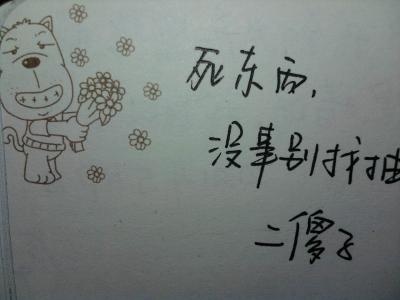 死东西，
没事别找抽
二傻子